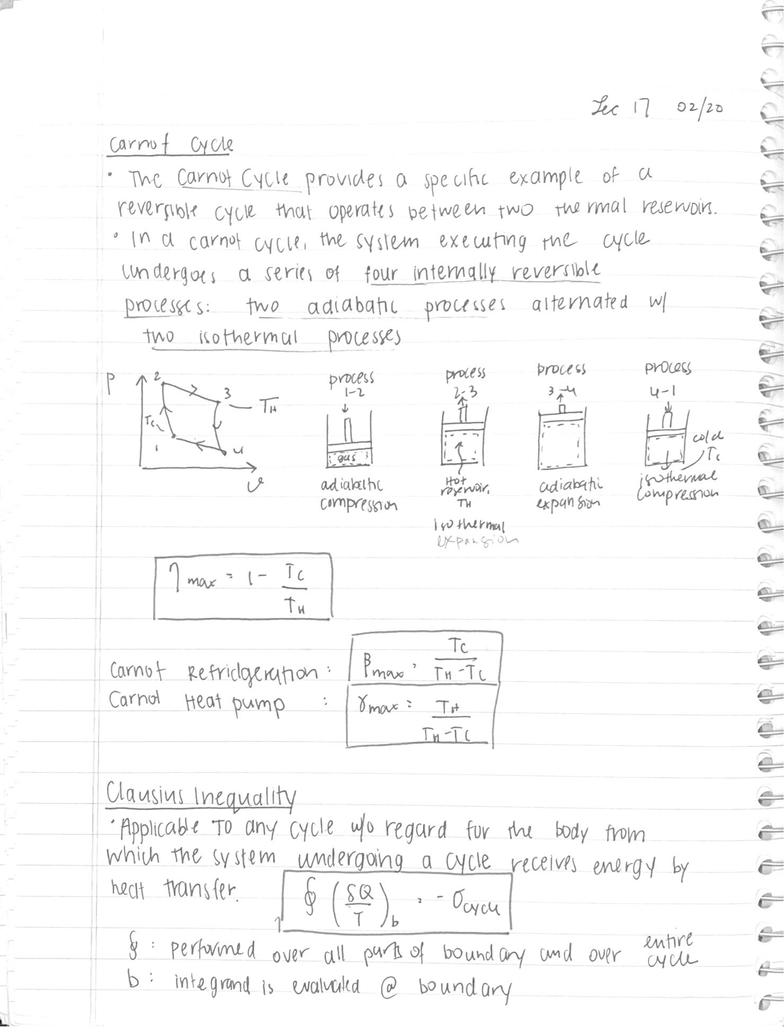 Lec 17 02/20
Carnot Cycle
• The Carnot Cycle provides a specific example of a
reversible cycle that operates between two thermal reservoirs.
• In a carnot cycle, the system executing the cycle
undergoes a series of four internally reversible
processes: two adiabatic processes alternated w/
two isothermal processes
P 2 3 TH Tc 1 4 v
process 1-2
gas
adiabatic
compression
process 2-3
Hot
reservoir,
TH
isothermal
expansion
process 3-4
adiabatic
expansion
process 4-1
cold
Tc
isothermal
compression
η max = 1 - Tc/TH
Carnot Refridgeration: βmax = Tc/(TH-Tc)
Carnot Heat pump : γmax = TH/(TH-Tc)
Clausius Inequality
• Applicable to any cycle w/o regard for the body from
which the system undergoing a cycle receives energy by
heat transfer. ∮ (δQ/T)b = -σcycle
∮ : performed over all parts of boundary and over entire cycle
b : integrand is evaluated @ boundary